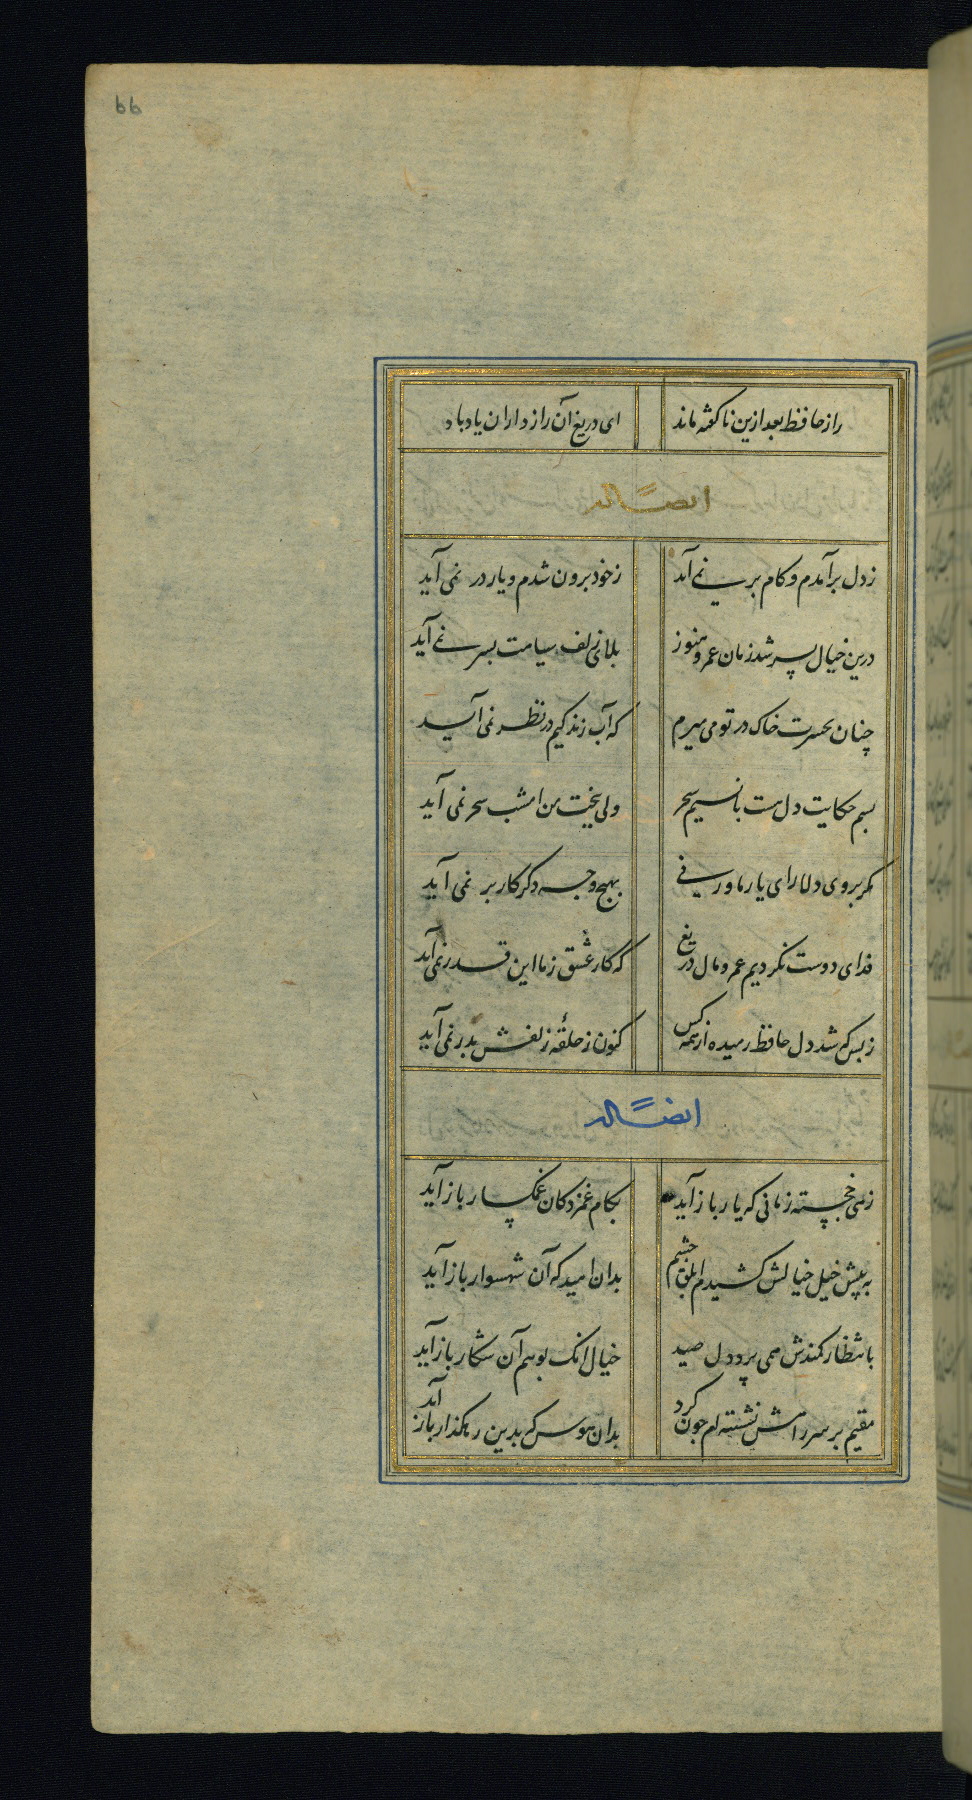 66
راز حافظ بعد ازین ناگفته ماند
ای دریغ آن راز داران یاد باد
ایضاً له
ز دل برآمدم و کام بر نمی آید
ز خود برون شدم و یار در نمی آید
درین خیال بسر شد زمان عمر و هنوز
بلای زلف سیاهت بسر نمی آید
چنان بحسرت خاک در تو می میرم
که آب زندگیم در نظر نمی آید
بسم حکایت دل هست با نسیم سحر
ولی ببخت من امشب سحر نمی آید
مگر بروی دلارای یار ما ورنی
بهیچ وجه دگر کار بر نمی آید
فدای دوست نکردیم عمر و مال دریغ
که کار عشق ز ما این قدر نمی آید
ز بس که شد دل حافظ رمیده از همه کس
کنون ز حلقه زلفش بدر نمی آید
ایضاً له
زهی خجسته زمانی که یار باز آید
بکام غمزدگان غمگسار باز آید
به پیش خیل خیالش کشیدم ابلق چشم
بدان امید که آن شهسوار باز آید
بانتظار کمندش همی پرد دل صید
خیال آنک بوهم آن شکار باز آید
مقیم بر سر راهش نشسته ام چون گرد
بدان هوس که بدین رهگذار باز آید